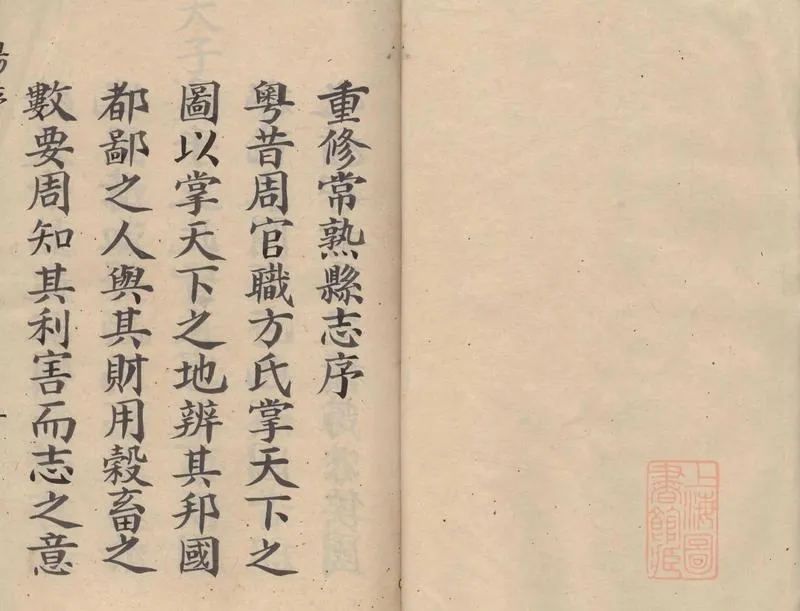 重修常熟縣志序
粵昔周官職方氏掌天下之
圖以掌天下之地辨其邦國
都鄙之人與其財用穀畜之
數要周知其利害而志之意
上海圖
書館藏